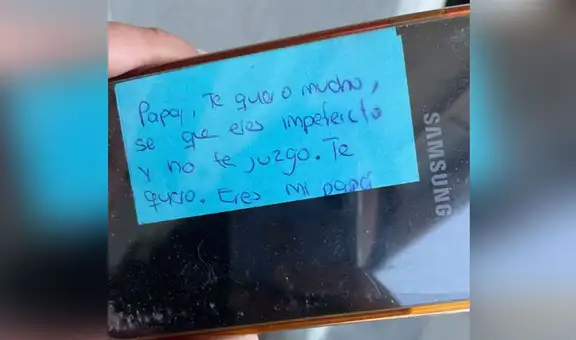 Papa, Te quiero mucho,
se que eres imperfecto
y no te juzgo. Te
quiero. Eres mi papá
SAMSUNG